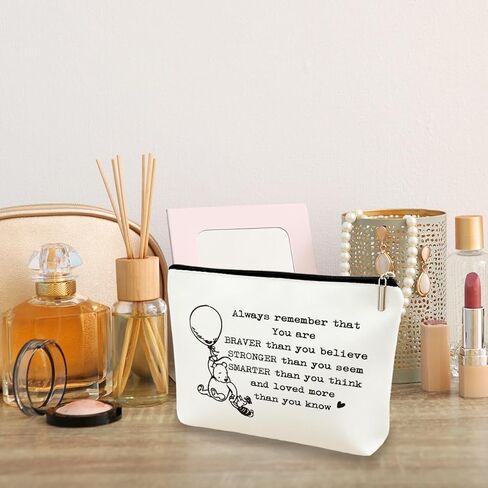 Always remember that
You are
BRAVER than you believe
STRONGER than you seem
SMARTER than you think
and loved more
than you know